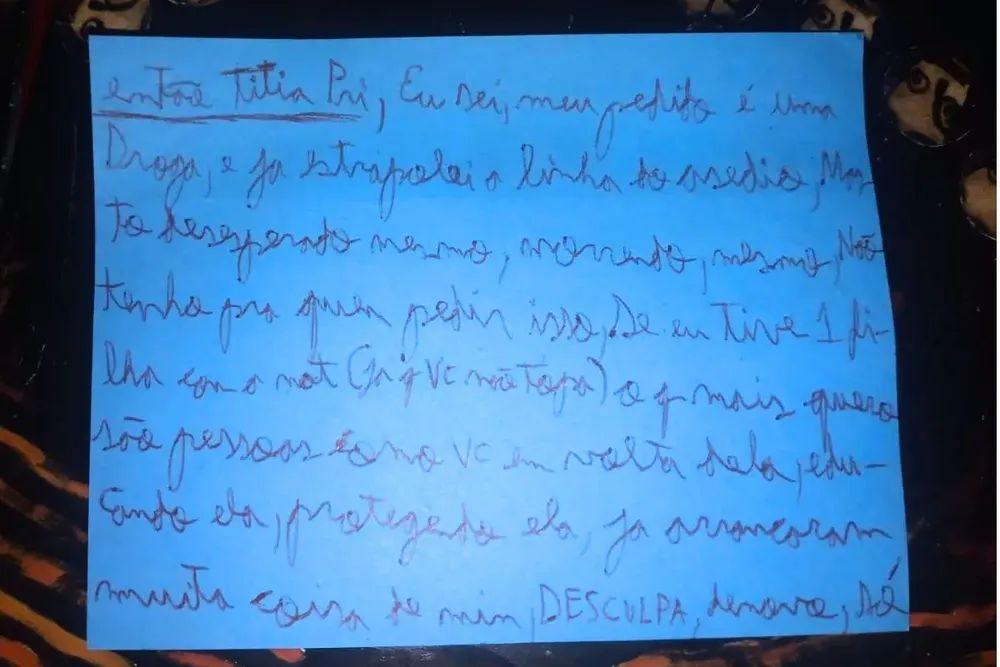 então Titia Pri, Eu sei, meu pedido é uma
Droga, e ja estrapolei a linha do asedio, Mas
to desesperado mesmo, morrendo, mesmo, Não
tenho pra quem pedir isso, Se eu Tive 1 fi-
lha con a nat (Ja q Vc não Topa) o q mais quero
são pessoas como Vc em volta dela, edu-
cando ela, protegendo ela, ja arrancaram
muita coisa de min, DESCULPA, denovo, Só